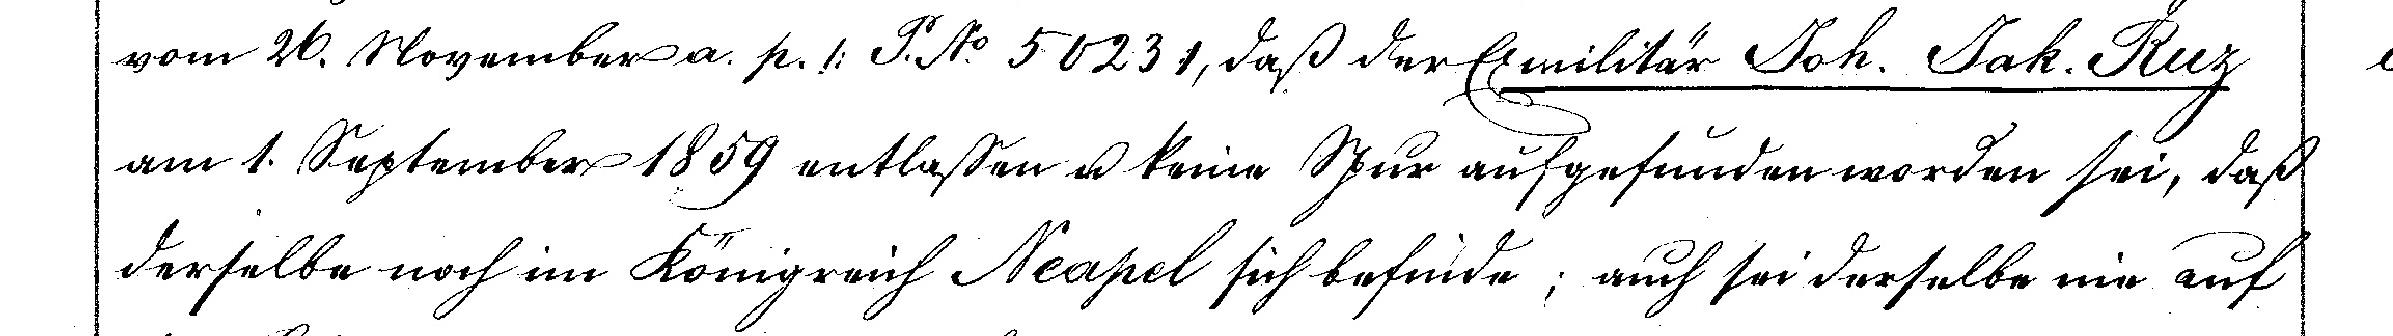 vom 26. November a. p. /: P. No 5023 :/, daß der Exmilitär Joh. Jak. Ruz
am 1. September 1859 entlassen u keine Spur aufgefunden worden sei, daß
derselbe noch im Königreich Neapel sich befinde; auch sei derselbe nie auf